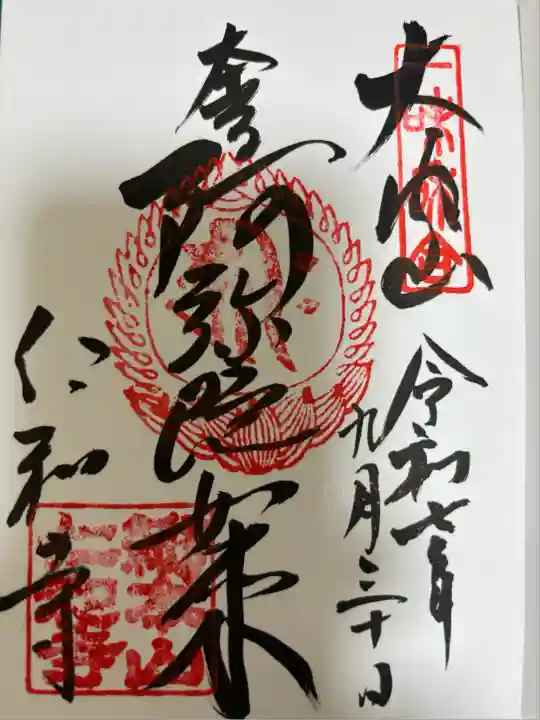 大内山
令和七年
九月三十日
奉
阿弥陀如来
仁和寺